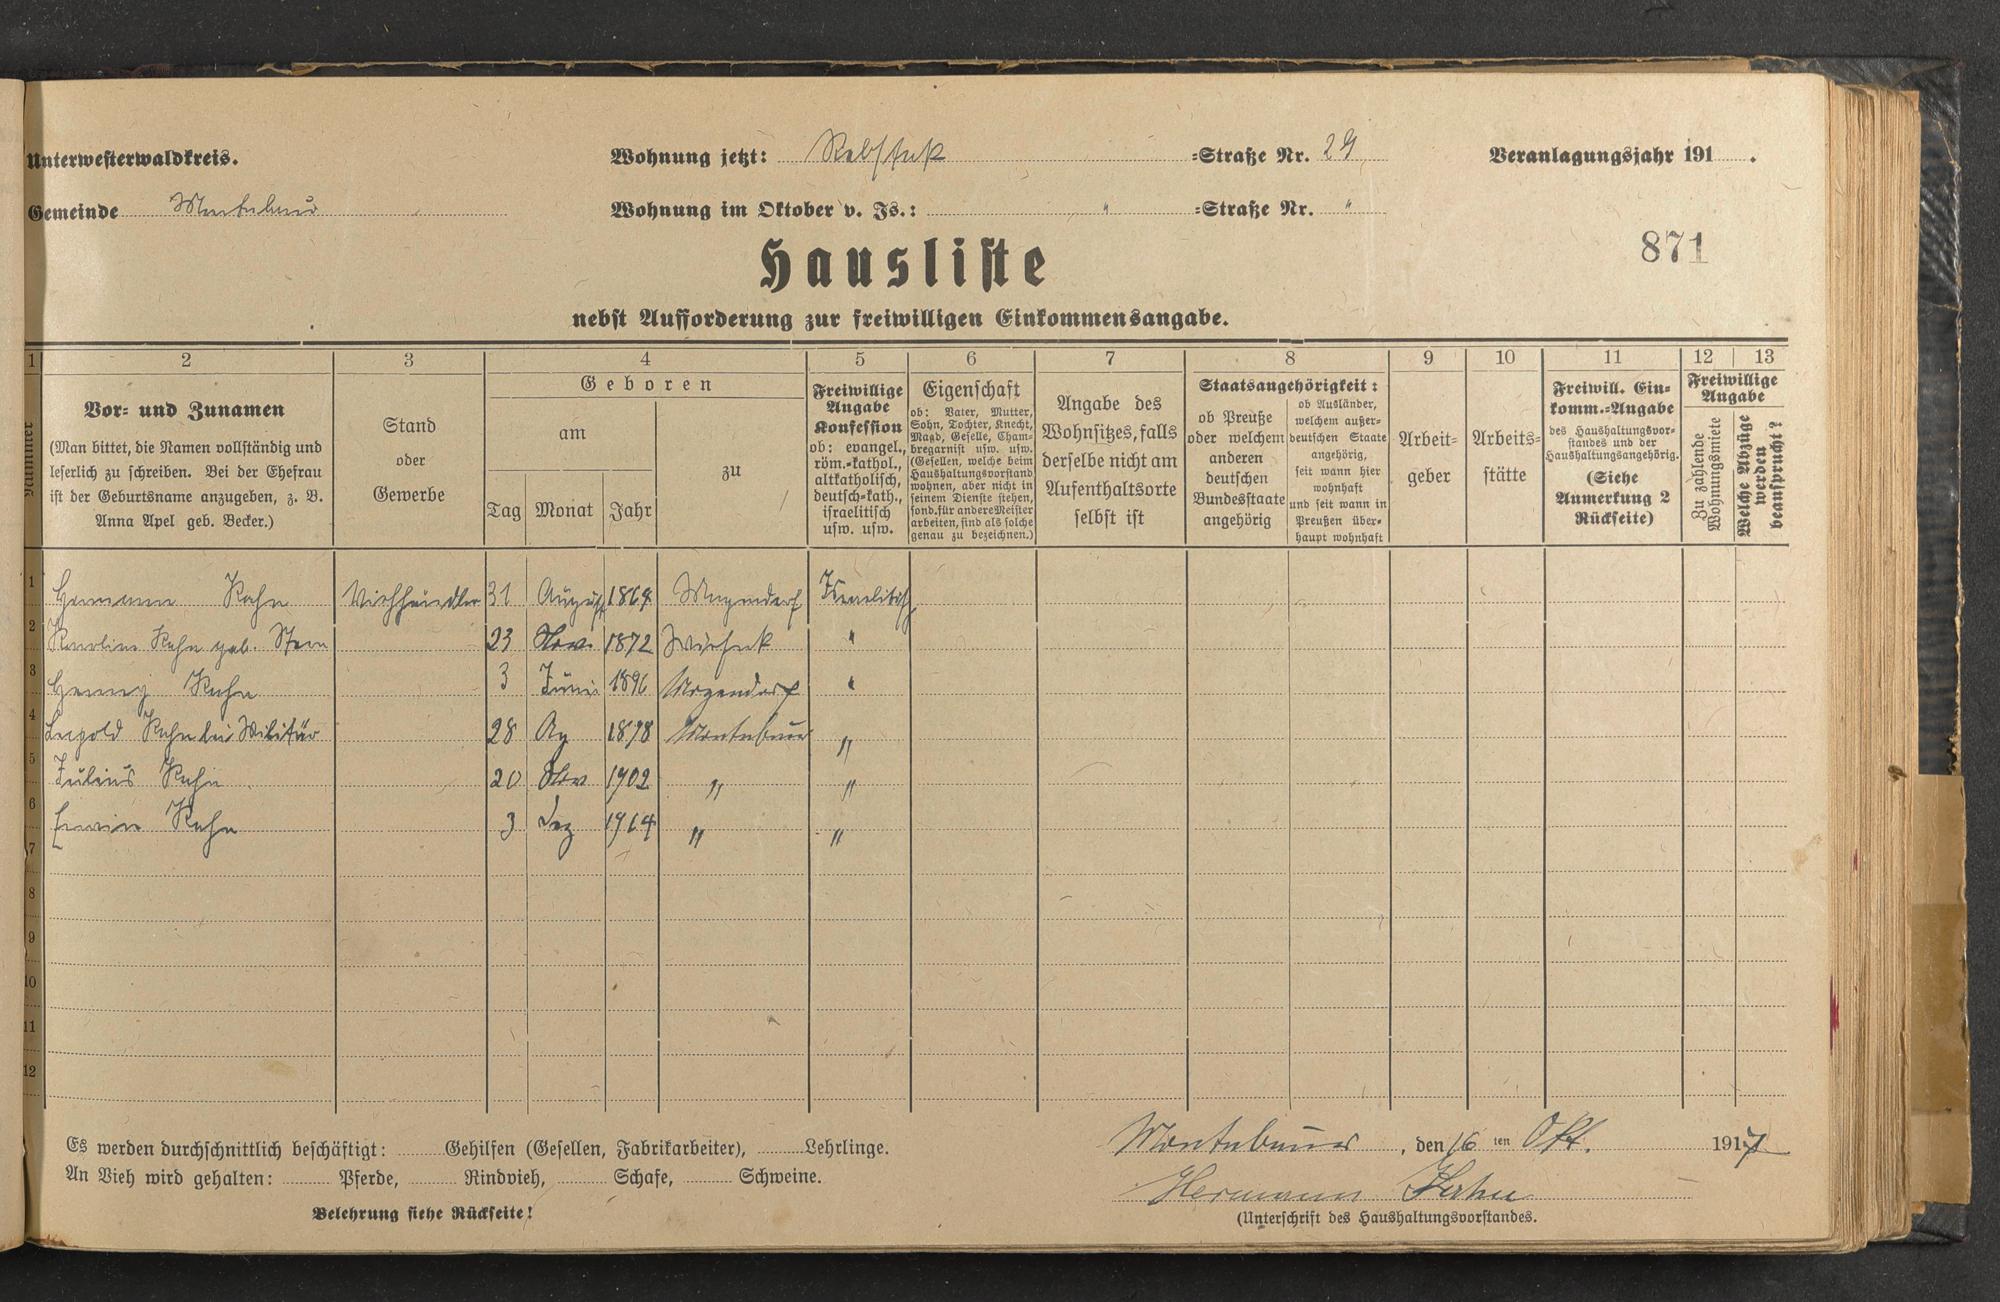 Unterwesterwaldkreis.
Wohnung jetzt: Rebstock -Straße Nr. 29
Veranlagungsjahr 191 .
Gemeinde Montabaur
Wohnung im Oktober v. Js.: " -Straße Nr. "
871
Hausliste
nebst Aufforderung zur freiwilligen Einkommensangabe.
1 2 3 4 5 6 7 8 9 10 11 12 13
Nummer
Vor- und Zunamen
(Man bittet, die Namen vollständig und
leserlich zu schreiben. Bei der Ehefrau
ist der Geburtsname anzugeben, z. B.
Anna Apel geb. Becker.)
Stand
oder
Gewerbe
Geboren
am
Tag Monat Jahr
zu
Freiwillige
Angabe
Konfession
ob: evangel.,
röm.-kathol.,
altkatholisch,
deutsch-kath.,
israelitisch
usw. usw.
Eigenschaft
ob: Vater, Mutter,
Sohn, Tochter, Knecht,
Magd, Geselle, Cham-
bregarnist usw. usw.
(Gesellen, welche beim
Haushaltungsvorstand
wohnen, aber nicht in
seinem Dienste stehen,
sond. für andere Meister
arbeiten, sind als solche
genau zu bezeichnen.)
Angabe des
Wohnsitzes, falls
derselbe nicht am
Aufenthaltsorte
selbst ist
Staatsangehörigkeit:
ob Preuße
oder welchem
anderen
deutschen
Bundesstaate
angehörig
ob Ausländer,
welchem außer-
deutschen Staate
angehörig,
seit wann hier
wohnhaft
und seit wann in
Preußen über-
haupt wohnhaft
Arbeit-
geber
Arbeits-
stätte
Freiwill. Ein-
komm.-Angabe
des Haushaltungsvor-
standes und der
Haushaltungsangehörig.
(Siehe
Anmerkung 2
Rückseite)
Freiwillige
Angabe
Zu zahlende
Wohnungsmiete
Welche Abzüge
werden
beansprucht?
1 Hermann Kahn Viehhändler 31 August 1864 Mogendorf Israelitisch
2 Karoline Kahn geb. Stern 23 Nov. 1872 "
3 Kahn 3 Juni 1896 Mogendorf "
4 Leopold Kahn bei Militär 28 1898 Montabaur "
5 Julius Kahn 20 Nov 1902 " "
6 Erwin Kahn 3 Dez 1914 " "
7
8
9
10
11
12
Es werden durchschnittlich beschäftigt: Gehilfen (Gesellen, Fabrikarbeiter), Lehrlinge.
An Vieh wird gehalten: Pferde, Rindvieh, Schafe, Schweine.
Belehrung siehe Rückseite!
Montabaur, den 16 ten Okt. 1917
Hermann Kahn
(Unterschrift des Haushaltungsvorstandes.